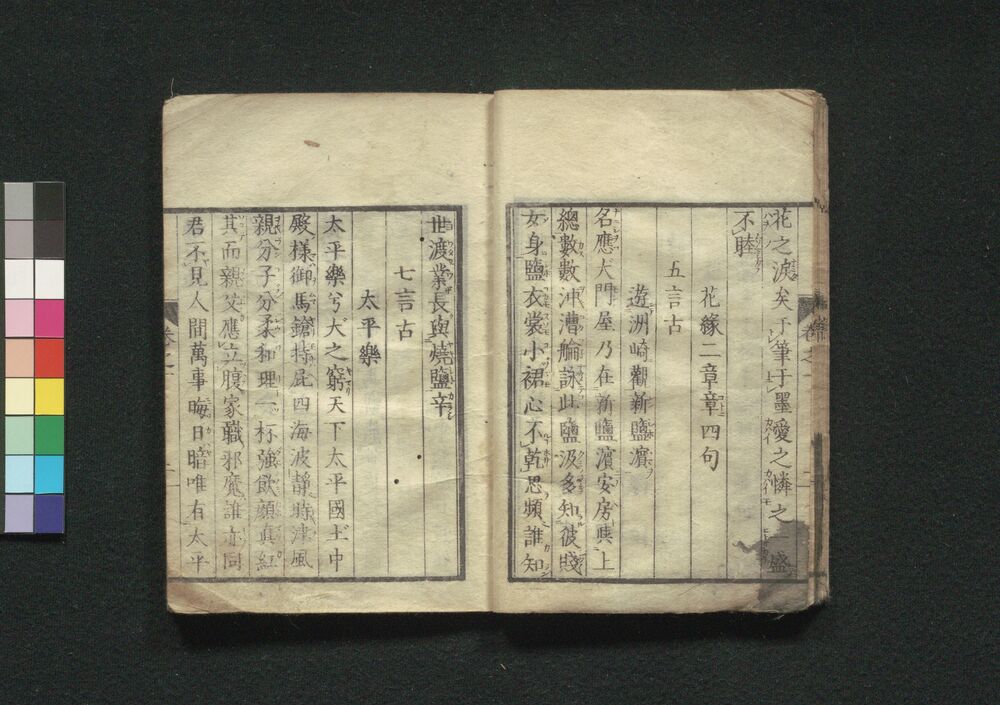 花之涙矣于筆于墨愛之憐之 盛
不睦
花緣二章章四句
五言古
遊洲崎觀新鹽濱
名應大門屋乃在新鹽濱安房與上
總數數沖漕艪詠此鹽汲多知彼賤
女身鹽衣裳小裙心不乾思頻誰知
世渡業長與燒鹽辛
七言古
太平樂
太平樂兮大之窮天下太平國土中
殿樣御馬鎗持屁四海波靜時津風
親分子分柔和理一杯強飲顏真紅
其而親父應立腹家職邪魔誰亦同
君不見人間萬事晦日暗唯有太平